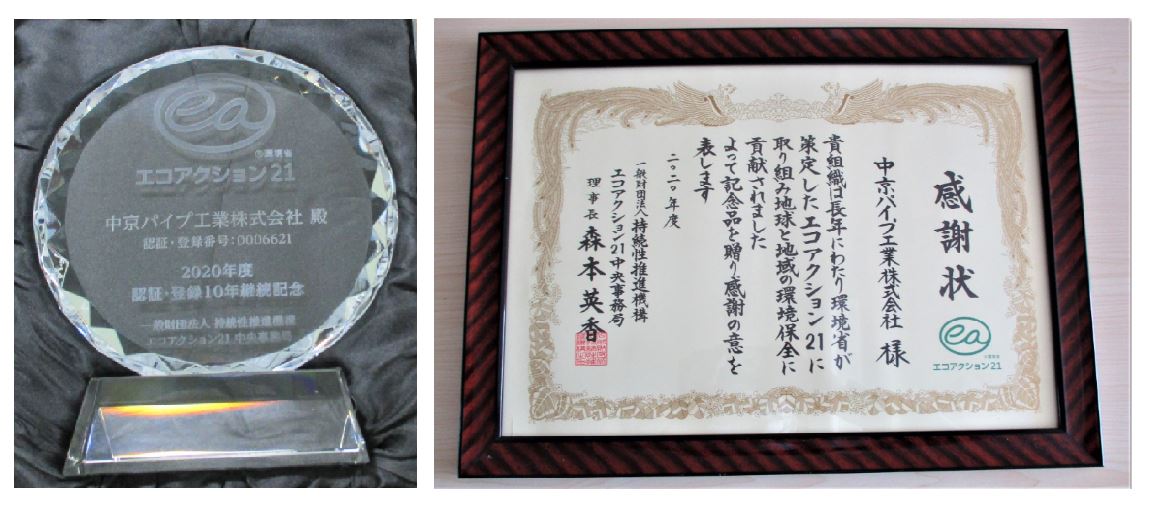 ea
®環境省
エコアクション21
中京パイプ工業株式会社 殿
認証・登録番号:0006621
2020年度
認証・登録10年継続記念
一般財団法人 持続性推進機構
エコアクション21中央事務局
感謝状
中京パイプ工業株式会社 様
貴組織は長年にわたり環境省が
策定したエコアクション21に
取り組み地球と地域の環境保全に
貢献されました
よって記念品を贈り感謝の意を
表します
二〇二〇年度
一般財団法人持続性推進機構
エコアクション21中央事務局
理事長 森本英香
ea
エコアクション21